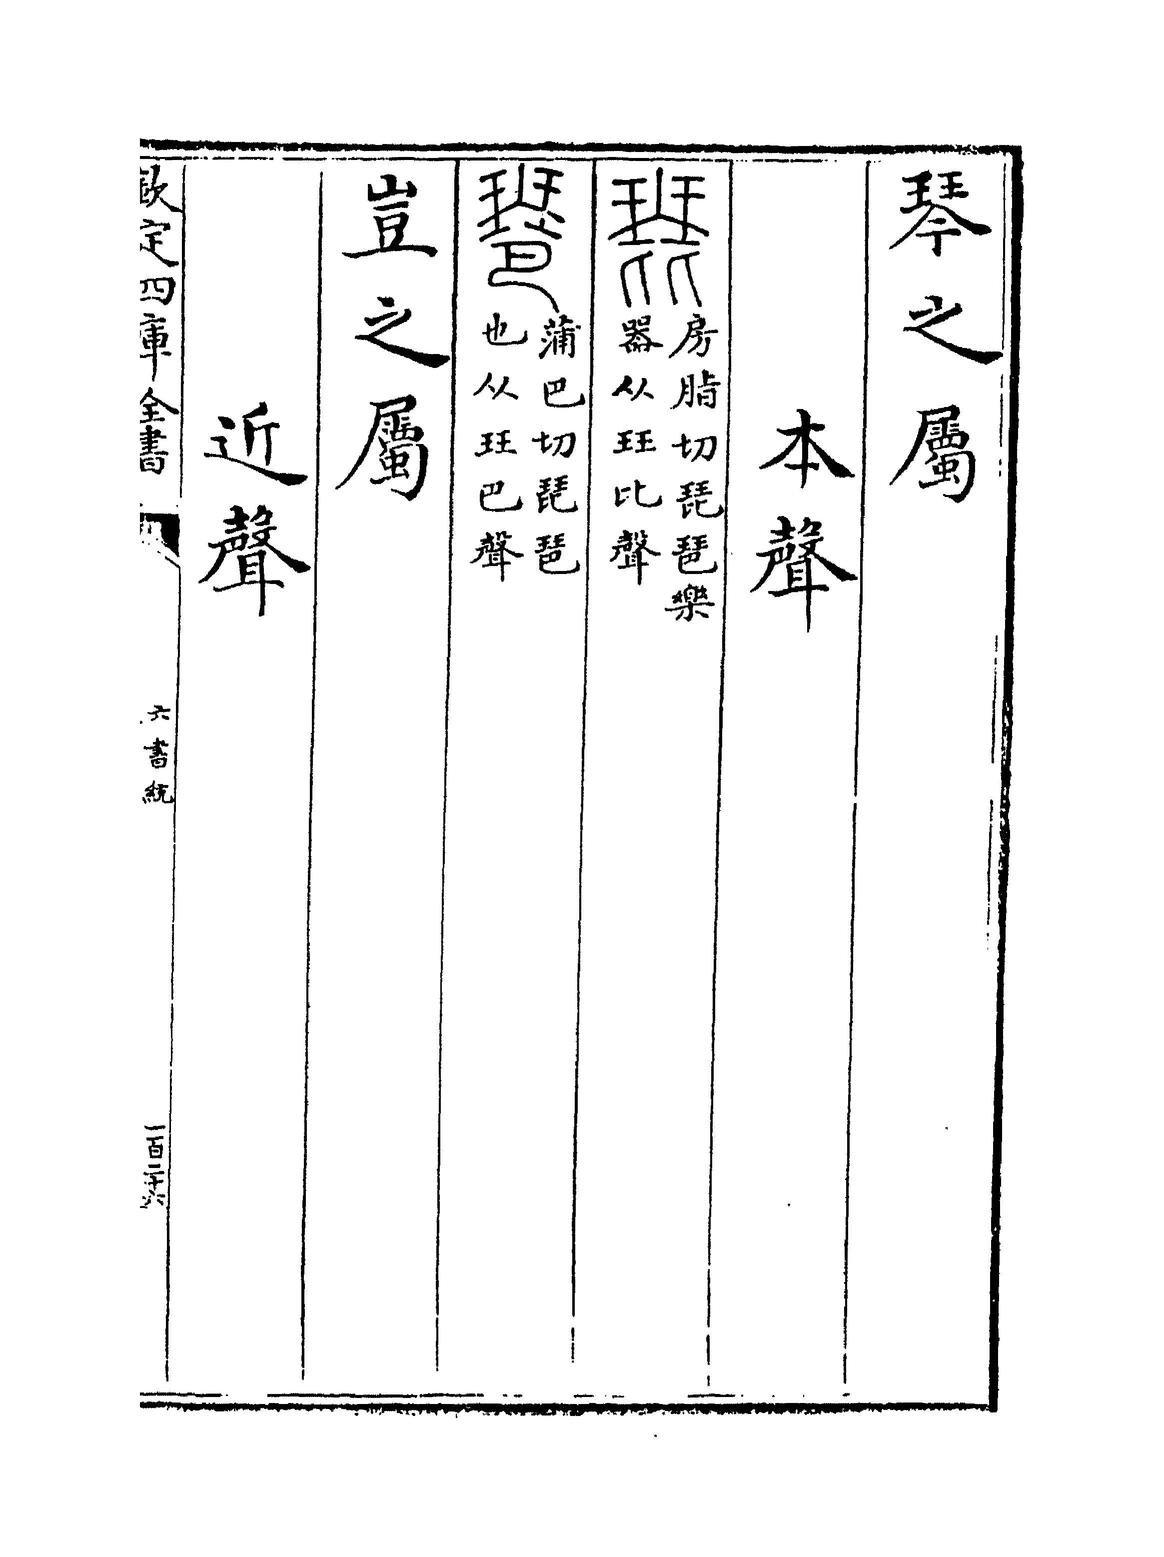 琴之屬
本聲
琵房脂切琵琶樂
器从珡比聲
琶蒲巴切琵琶
也从珡巴聲
豈之屬
近聲
欽定四庫全書
六書統
一百二十六